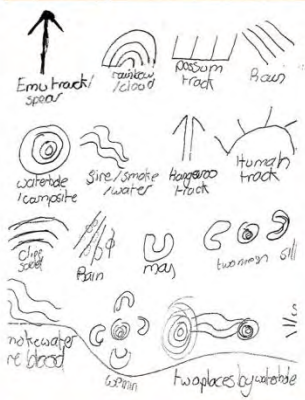 Emu track/ spear
rainbow /cloud
possum track
Rain
waterhole /campsite
fire/smoke /water
Kangaroo track
Human track
Rain
man
two men sill
mokewater
re blood
women
two places by waterhole